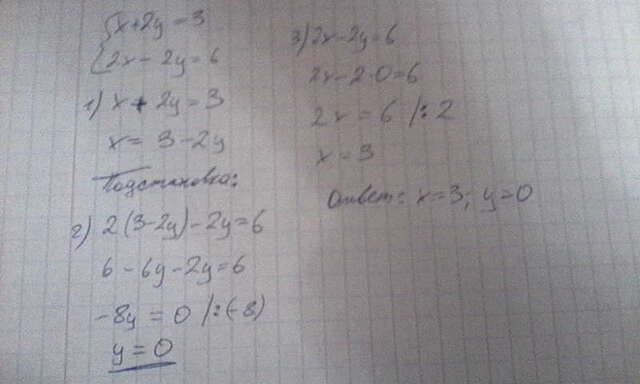 {x+2y=3
{2x-2y=6
1) x+2y=3
x=3-2y
Подстановка:
2) 2(3-2y)-2y=6
6-6y-2y=6
-8y=0 |:(-8)
y=0
3) 2x-2y=6
2x-2·0=6
2x=6 |:2
x=3
Ответ: x=3; y=0